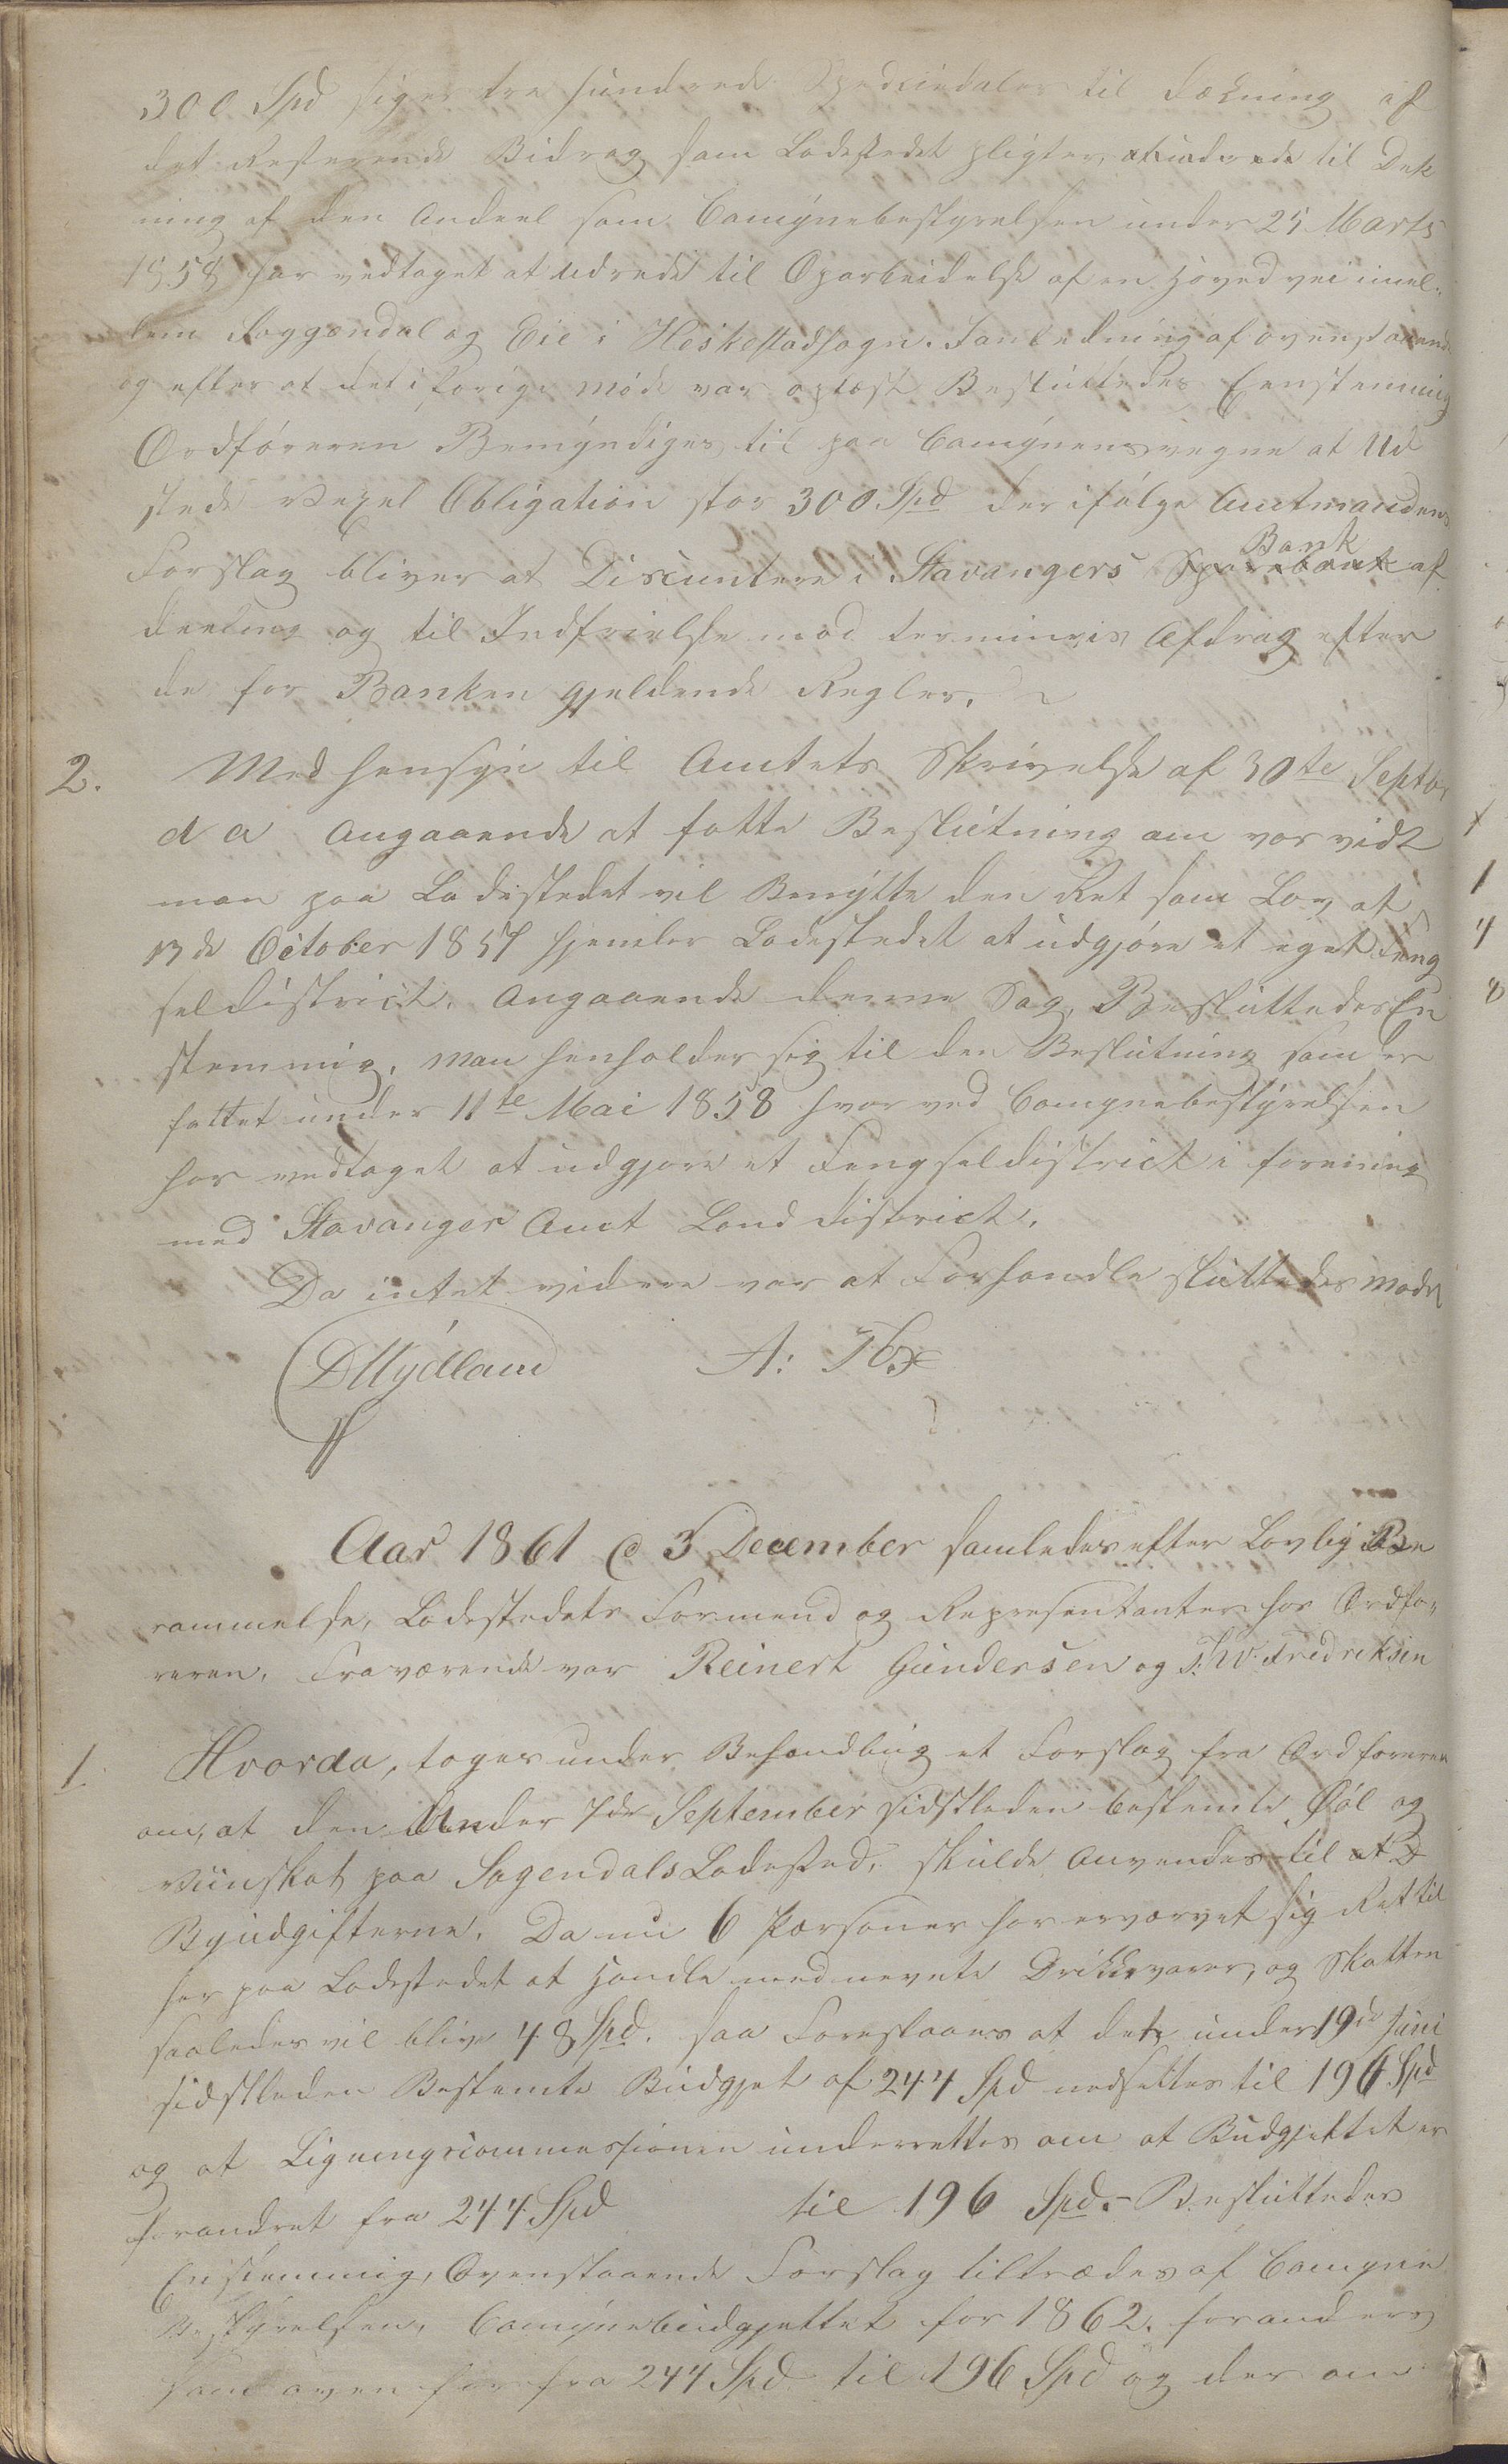 300 Spd siger tre hundrede Speciedaler til Dækning af
det Resterende Bidrag som Ladestedet pligter at udrede til Dek
ning af den Andeel som Comynebestyrelsen under 25 Marts
1858 har vedtaget at Udrede til Oparbeidelse af en Hoved vei imel-
lem Soggendal og Eie i Heskestadsogn. I anledning af ovenstaaende
og efter at det i forige møde var oplæst Besluttedes Eenstemmig
Ordføreren Bemyndiges til paa Comynens vegne at Ud
stede Vexel Obligation stor 300 Spd der ifølge Amtmandens
Bank
Forslag bliver at Discuntere i Stavangers Sparebank af
deeling og til Indfrielse mod terminvis Afdrag efter
de for Banken gjeldende Regler.
2. Med hensyn til Amtets Skrivelse af 30te Septbr
d a Angaaende at fatte Beslutning om vor vidt
man paa Ladestedet vil Benytte den Ret som Lov af
13de October 1857 hjemler Ladestedet at udgjøre et eget Feng
seldistrict. Angaaende denne Sag, Besluttedes En
stemmig, man henholder sig til den Beslutning som er
fattet under 11te Mai 1858 hvor ved Comynebestyrelsen
har vedtaget at udgjøre et Fengseldistrict i forening
med Stavanger Amt Land district.
Da intet videre var at Forhandle sluttedes mødet
DMydland A: Ibs
Aar 1861 d 3 December samledes efter Lovlig Be
rammelse, Ladestedets Formend og Representanter hos Ordfø-
reren, Fraværende var Reinert Gundersen og T: W. Fredriksen
1. Hvorda, toges under Behandling et Forslag fra Ordføreren
om, at den Under 7de September sidstleden bestemte Øl og
Viinskat paa Sogendals Ladested, skulde Anvendes til at D
Byudgifterne. Da nu 6 Personer har ervervet sig Ret til
her paa Ladestedet at Handle med nevnte Drikkevarer, og Skatten
saaledes vil blive 48 Spd. saa Foreslaaes at det under 19de Juni
sidstleden Bestemte Budgjet af 244 Spd nedsettes til 196 Spd
og at Ligningscommessionen underrettes om at Budgjettet er
forandret fra 244 Spd til 196 Spd.- Besluttedes
Enstemmig, Ovenstaaende Forslag tiltrædes af Comyne
Bestyrelsen, Comynebudgjettet for 1862. forandres
som oven for fra 244 Spd til 196 Spd og der om